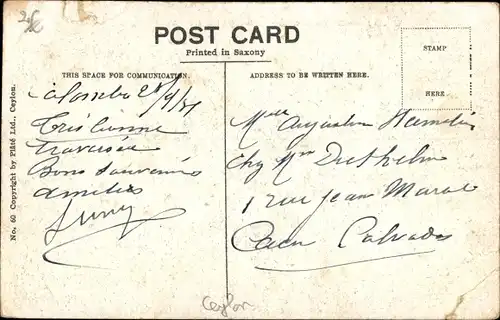 POST CARD
Printed in Saxony
THIS SPACE FOR COMMUNICATION.
ADDRESS TO BE WRITTEN HERE.
STAMP
HERE
No. 60 Copyright by Plâté Ltd., Ceylon.
Colombo
Très bonne
Traversée
Bons souvenirs
amitiés
Mlle Augustine
chez Mme
1 rue Jean Marot
Caen Calvados
Ceylon